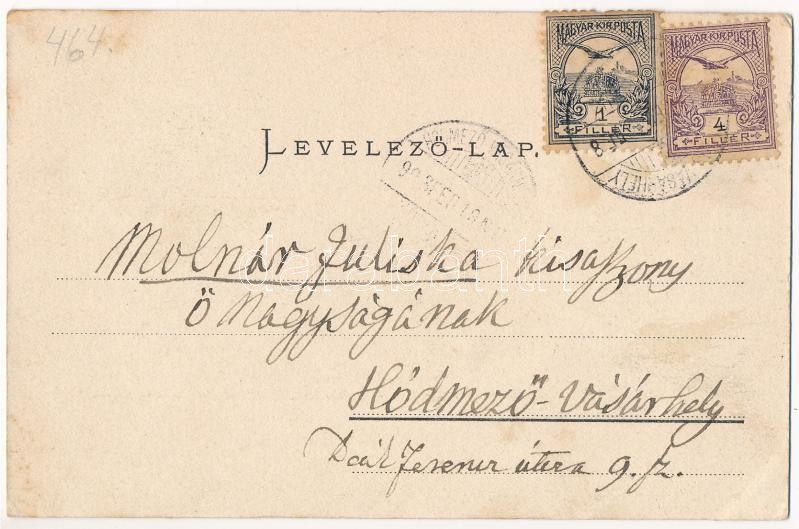 464.
MAGYAR·KIR·POSTA
1
FILLÉR
MAGYAR·KIR·POSTA
4
FILLÉR
LEVELEZŐ-LAP.
Molnár Juliska kisaszony
ő Nagyságának
Hódmező-Vásárhely
Deák Ferencz útcza 9. sz.
darabanth